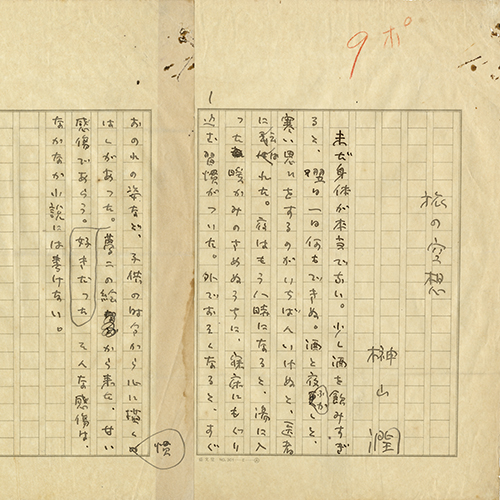 9ポ
1
旅の空想
榊山潤
まだ身体が本当でない。少し酒を飲みすぎ
ると、翌日一日何もできぬ。酒と夜ふかしと、
寒い思ひをするのがいちばんいけぬと、医者
に れた。夜はもう八時になると、湯に入
つた暖かみのさめぬうちに、寝床にもぐり
込む習慣がついた。外でおそくなると、すぐ
おのれの姿など、子供の時分から心に描く
慣
はしがあつた。夢二の絵から来た、甘い
感傷であらう。好きだつた そんな感傷は、
なかなか小説には書けない。